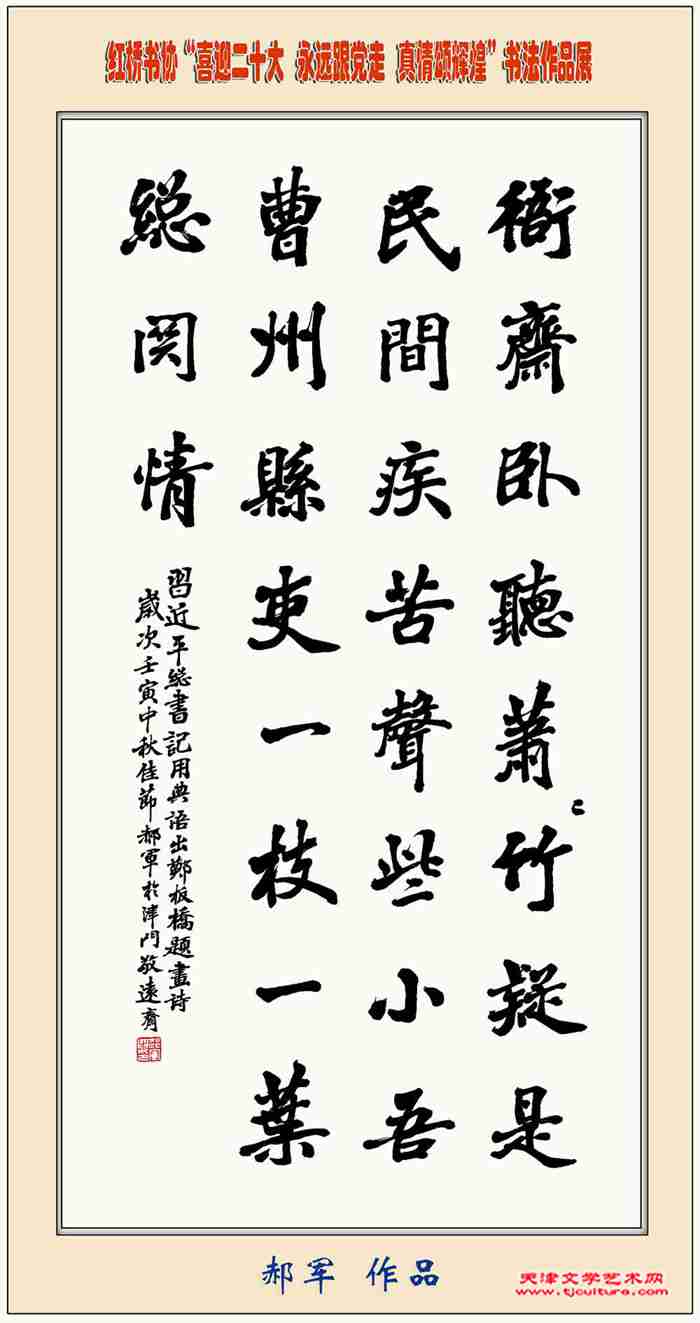 红桥书协“喜迎二十大 永远跟党走 真情颂辉煌”书法作品展
衙齋卧聽蕭〻竹疑是
民間疾苦聲些小吾
曹州縣吏一枝一葉
総関情
習近平総書記用典語出鄭板橋題畫詩
歲次壬寅中秋佳節郝軍於津門敬遠齋
郝军 作品
天津文学艺术网
www.tjculture.com